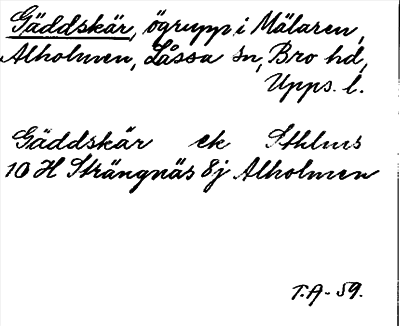 Gäddskär, ögrupp i Mälaren,
Alholmen, Låssa sn, Bro hd,
Upps. l.
Gäddskär ek Sthlms
10 H Strängnäs 8j Alholmen
T.A-59.